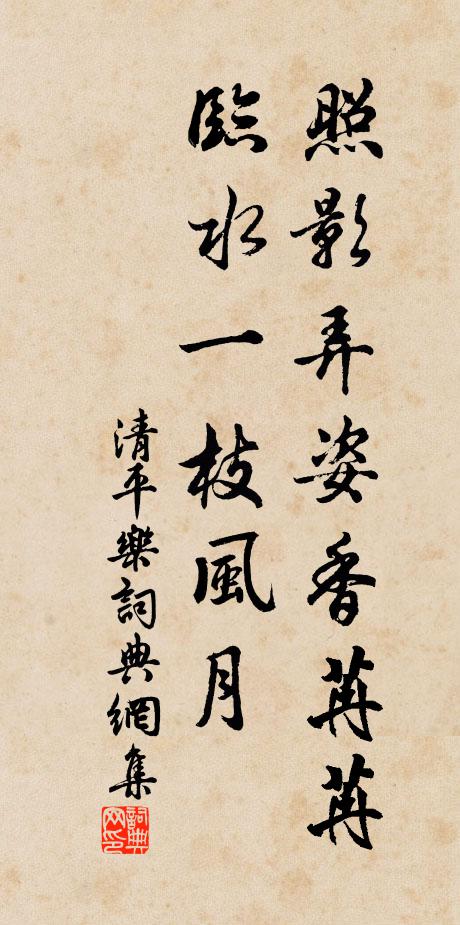 照影弄姿香苒苒
臨水一枝風月
清平樂詞典網集
詞典网印